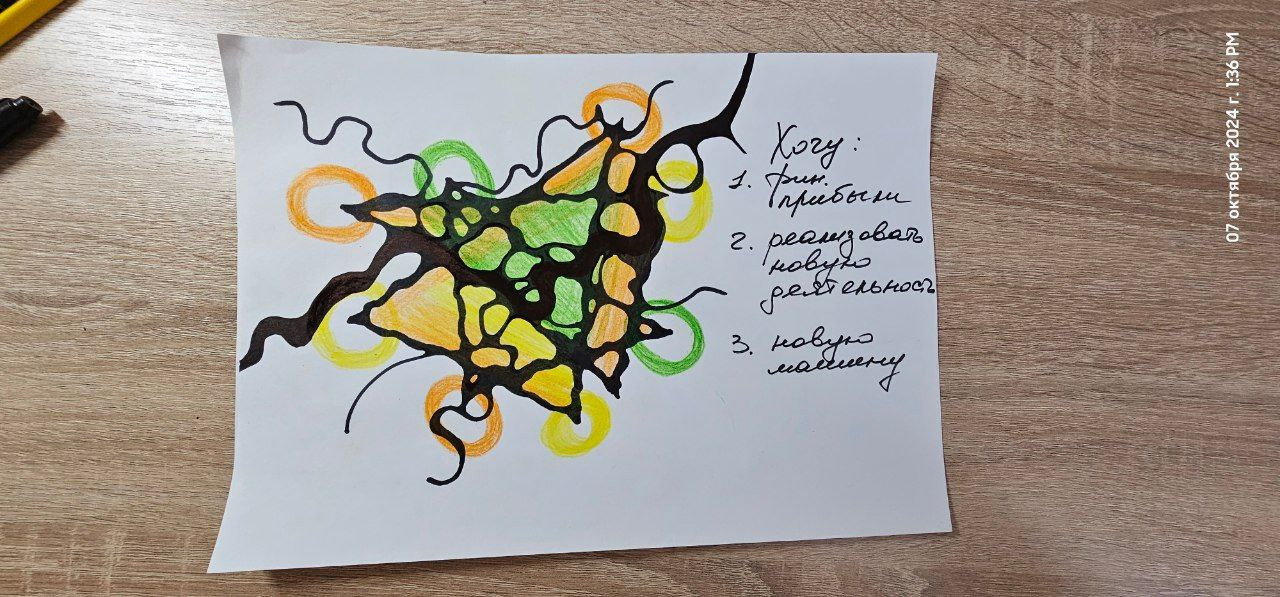 Хочу:
1. фин.
прибыли
2. реализовать
новую
деятельность
3. новую
машину
07 октября 2024 г. 1:36 PM